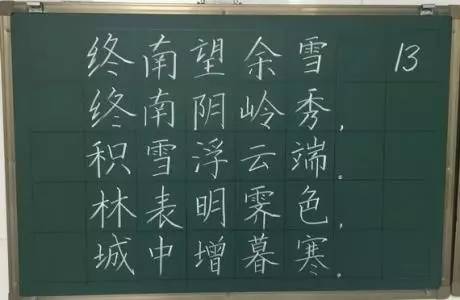 终南望余雪 13
终南阴岭秀，
积雪浮云端。
林表明霁色，
城中增暮寒。